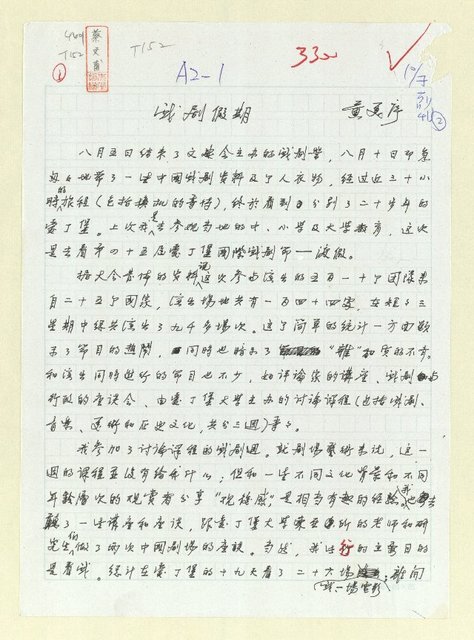 T152
T152
蔡文甫
330
①
A2-1
②
戲劇假期
黃美序
八月五日結束了文藝会主办的戲劇營,八月十日即匆
匆地帶了一些中國戲劇資料及个人衣物,經过近三十小
時的旅程(包括換机的等待),終於看到了分别了二十多年的
愛丁堡。上次我是去參观当地的中、小学及大学教育,这次
是去看第四十五届愛丁堡國際戲劇節——渡假。
據大会書佈的資料說这次參与演出的五百一十个團隊來
自二十五个國家,演出場地共有一百四十四家,在短短三
星期中總共演出了九千多場次。这个简單的統計一方面顯
示了節目的熱鬧,同時也暗示了“雜”和質的不齊。
和演出同時進行的節目也不少,如評論家的講座、戲劇与
行政的座談会、由愛丁堡大学主办的討論課程(包括戲劇、
音樂、美術和歷史文化,共分三週)等等。
我參加了討論課程的戲劇週。就劇場藝術來說,这一
週的課程並沒有給我什么;但和一些不同文化背景和不同
年齡層次的观賞者分享“观後感”,是相当有趣的經驗。我也去
聽了一些講座和座談,跟愛丁堡大学東亞所的老師和研
究生們做了兩次中國劇場的座談。当然,我这行的主要目的
是看戲。總計在愛丁堡的十九天看了二十六場戲一場電影,雖同